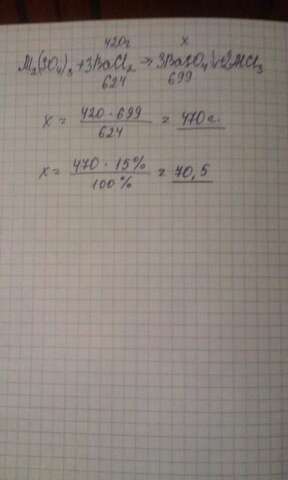 420г x
M₂(SO₄)₃ + 3BaCl₂ → 3BaSO₄ + 2MCl₃
624 699
x = 420 · 699 / 624 = 470 г.
x = 470 · 15% / 100% = 70,5